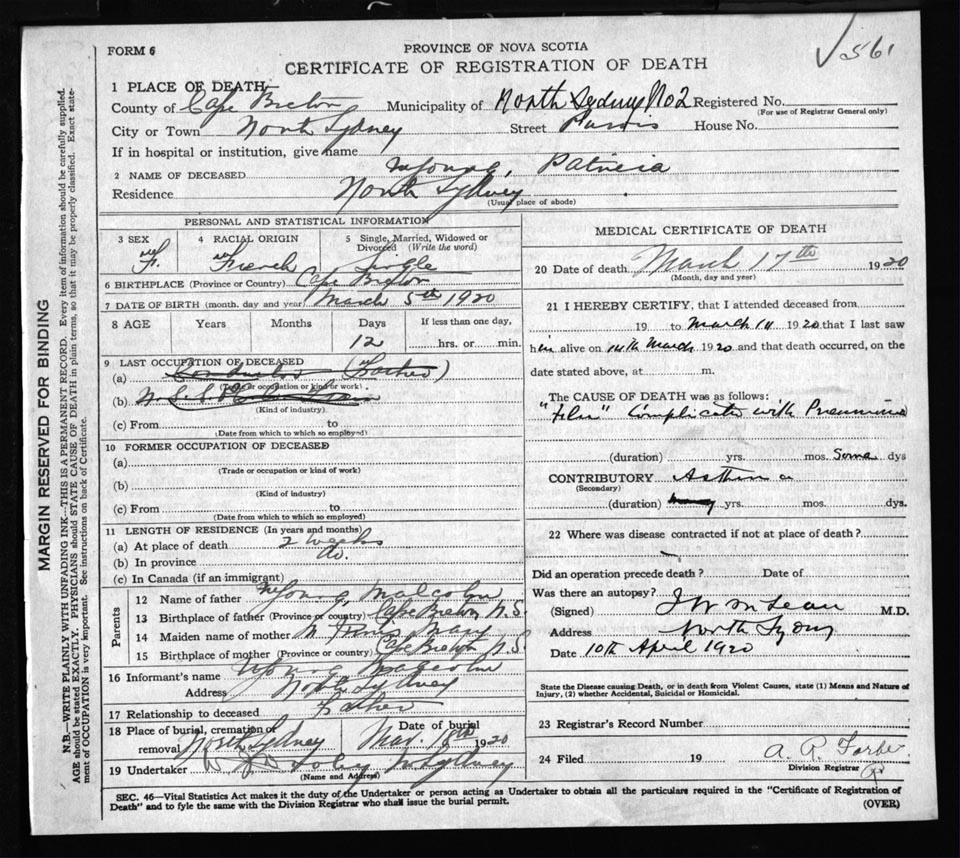 √ 561
FORM 6
PROVINCE OF NOVA SCOTIA
CERTIFICATE OF REGISTRATION OF DEATH
MARGIN RESERVED FOR BINDING
N.B.—WRITE PLAINLY WITH UNFADING INK—THIS IS A PERMANENT RECORD. Every item of information should be carefully supplied.
AGE should be stated EXACTLY. PHYSICIANS should STATE CAUSE OF DEATH in plain terms, so that it may be properly classified. Exact state-
ment of OCCUPATION is very important. See instructions on back of Certificate.
1 PLACE OF DEATH
County of Cape Breton Municipality of North Sydney No2 Registered No.
(For use of Registrar General only)
City or Town North Sydney Street House No.
If in hospital or institution, give name
2 NAME OF DECEASED Young, Patricia
Residence North Sydney
(Usual place of abode)
PERSONAL AND STATISTICAL INFORMATION
3 SEX F. 4 RACIAL ORIGIN French 5 Single, Married, Widowed or Divorced (Write the word) Single
6 BIRTHPLACE (Province or Country) Cape Breton
7 DATE OF BIRTH (month, day and year) March 5th 1920
8 AGE Years Months Days If less than one day,
12 hrs. or min.
9 LAST OCCUPATION OF DECEASED
(a) Conductor (Father)
(Trade or occupation or kind of work)
(b)
(Kind of industry)
(c) From to
(Date from which to which so employed)
10 FORMER OCCUPATION OF DECEASED
(a)
(Trade or occupation or kind of work)
(b)
(Kind of industry)
(c) From to
(Date from which to which so employed)
11 LENGTH OF RESIDENCE (In years and months)
(a) At place of death 2 weeks
(b) In province do.
(c) In Canada (if an immigrant)
Parents
12 Name of father Young, Malcolm
13 Birthplace of father (Province or country) Cape Breton N.S.
14 Maiden name of mother Mary
15 Birthplace of mother (Province or country) Cape Breton N.S.
16 Informant's name Young Malcolm
Address North Sydney
17 Relationship to deceased Father
18 Place of burial, cremation or removal North Sydney Date of burial Mar. 18th 1920
19 Undertaker N Sydney
(Name and Address)
MEDICAL CERTIFICATE OF DEATH
20 Date of death March 17th 1920
(Month, day and year)
21 I HEREBY CERTIFY, that I attended deceased from
19 to March 14 1920 that I last saw
h alive on 14th March 1920 and that death occurred, on the
date stated above, at m.
The CAUSE OF DEATH was as follows:
Complicated with Pneumonia
(duration) yrs. mos. Some dys
CONTRIBUTORY
(Secondary)
(duration) yrs. mos. dys.
22 Where was disease contracted if not at place of death?
Did an operation precede death? Date of
Was there an autopsy?
(Signed) J W McLean M.D.
Address North Sydney
Date 10th April 1920
State the Disease causing Death, or in death from Violent Causes, state (1) Means and Nature of
Injury, (2) whether Accidental, Suicidal or Homicidal.
23 Registrar's Record Number
24 Filed 19 A. R. Forbes
Division Registrar
SEC. 46—Vital Statistics Act makes it the duty of the Undertaker or person acting as Undertaker to obtain all the particulars required in the "Certificate of Registration of
Death" and to fyle the same with the Division Registrar who shall issue the burial permit. (OVER)